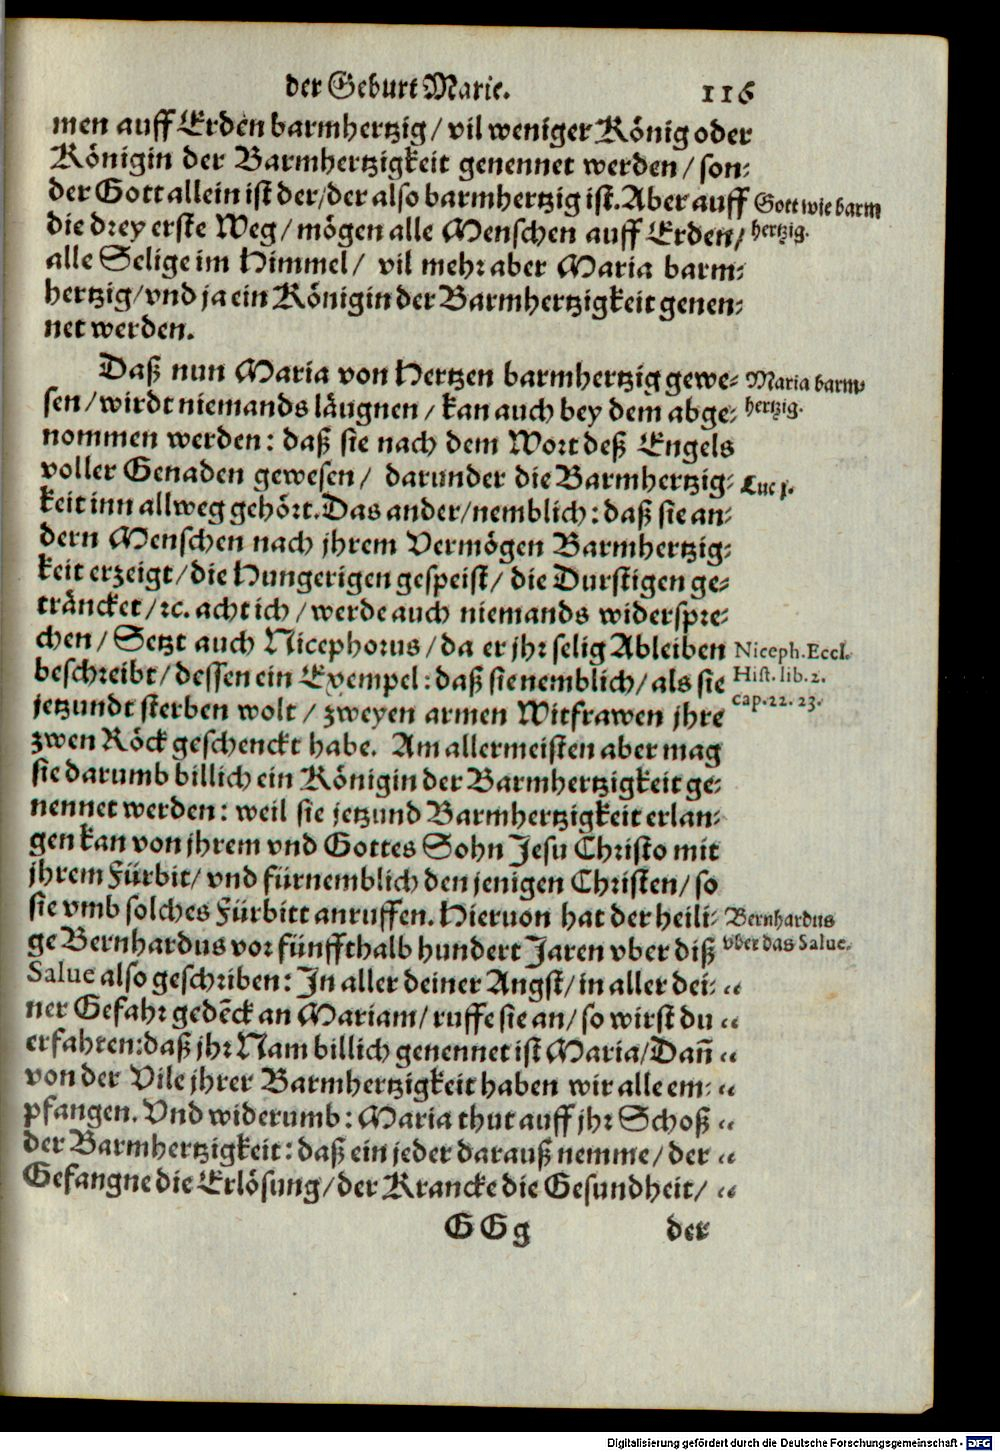 der Geburt Marie. 116
men auff Erden barmhertzig / vil weniger König oder
Königin der Barmhertzigkeit genennet werden / son-
der Gott allein ist der/der also barmhertzig ist. Aber auff
Gott wie barm
hertzig.
die drey erste Weg / mögen alle Menschen auff Erden/
alle Selige im Himmel / vil mehr aber Maria barm-
hertzig/vnd ja ein Königin der Barmhertzigkeit genen-
net werden.
Daß nun Maria von Hertzen barmhertzig gewe-
Maria barm-
hertzig.
sen / wirdt niemands läugnen / kan auch bey dem abge-
nommen werden: daß sie nach dem Wort deß Engels
voller Genaden gewesen / darunder die Barmhertzig-
Luc j.
keit inn allweg gehört. Das ander/nemblich: daß sie an-
dern Menschen nach jhrem Vermögen Barmhertzig-
keit erzeigt / die Hungerigen gespeist / die Durstigen ge-
träncket / ꝛc. acht ich / werde auch niemands widerspre-
chen / Setzt auch Nicephorus / da er jhr selig Ableiben
Niceph. Eccl.
Hist. lib. 2.
cap. 22. 23.
beschreibt / dessen ein Exempel: daß sie nemblich / als sie
jetzundt sterben wolt / zweyen armen Witfrawen jhre
zwen Röck geschenckt habe. Am allermeisten aber mag
sie darumb billich ein Königin der Barmhertzigkeit ge-
nennet werden: weil sie jetzund Barmhertzigkeit erlan-
gen kan von jhrem vnd Gottes Sohn Jesu Christo mit
jhrem Fürbit/ vnd fürnemblich den jenigen Christen/ so
sie vmb solches Fürbitt anruffen. Hieruon hat der heili-
Bernhardus
vber das Salue.
ge Bernhardus vor fünffthalb hundert Jaren vber diß
Salue also geschriben: In aller deiner Angst / in aller dei- “
ner Gefahr gedẽck an Mariam / ruffe sie an / so wirst du “
erfahren: daß jhr Nam billich genennet ist Maria/Dañ “
von der Vile jhrer Barmhertzigkeit haben wir alle em- “
pfangen. Vnd widerumb: Maria thut auff jhr Schoß “
der Barmhertzigkeit: daß ein jeder darauß nemme / der “
Gefangne die Erlösung / der Krancke die Gesundheit / “
GGg der
Digitalisierung gefördert durch die Deutsche Forschungsgemeinschaft - DFG